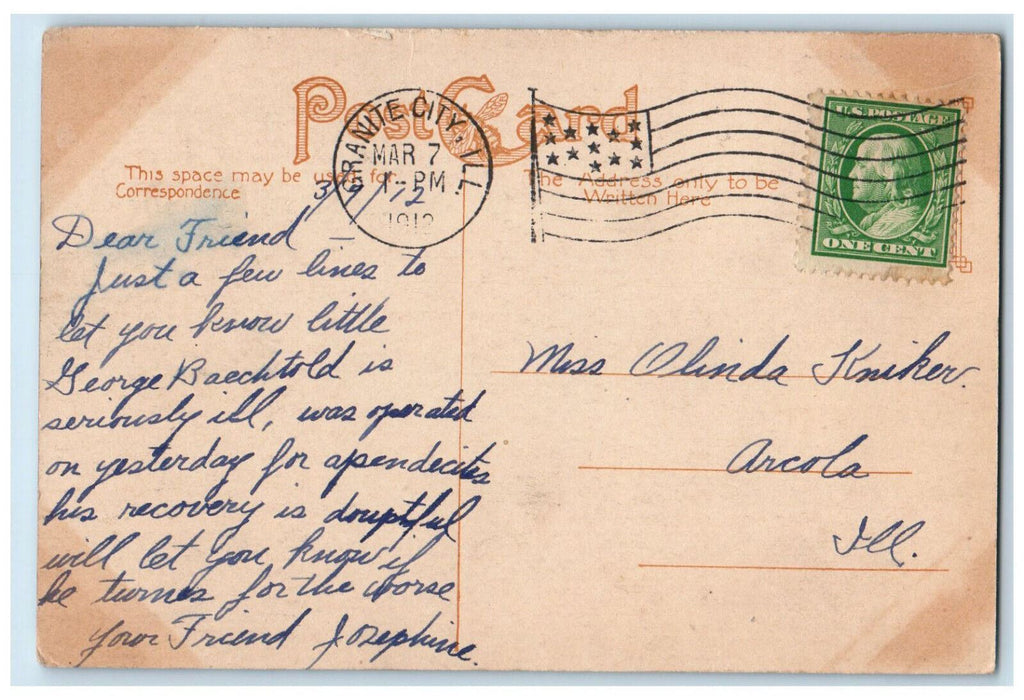 Post Card
GRANITE CITY, ILL.
MAR 7
1-PM
1912
U.S. POSTAGE
ONE CENT
This space may be used for
Correspondence
The Address only to be
Written Here
3/7/12
Dear Friend –
Just a few lines to
let you know little
George Baechtold is
seriously ill, was operated
on yesterday for apendecites
his recovery is douptful
will let you know if
he turnes for the worse
your Friend Josephine.
Miss Olinda Kniker.
Arcola
Ill.